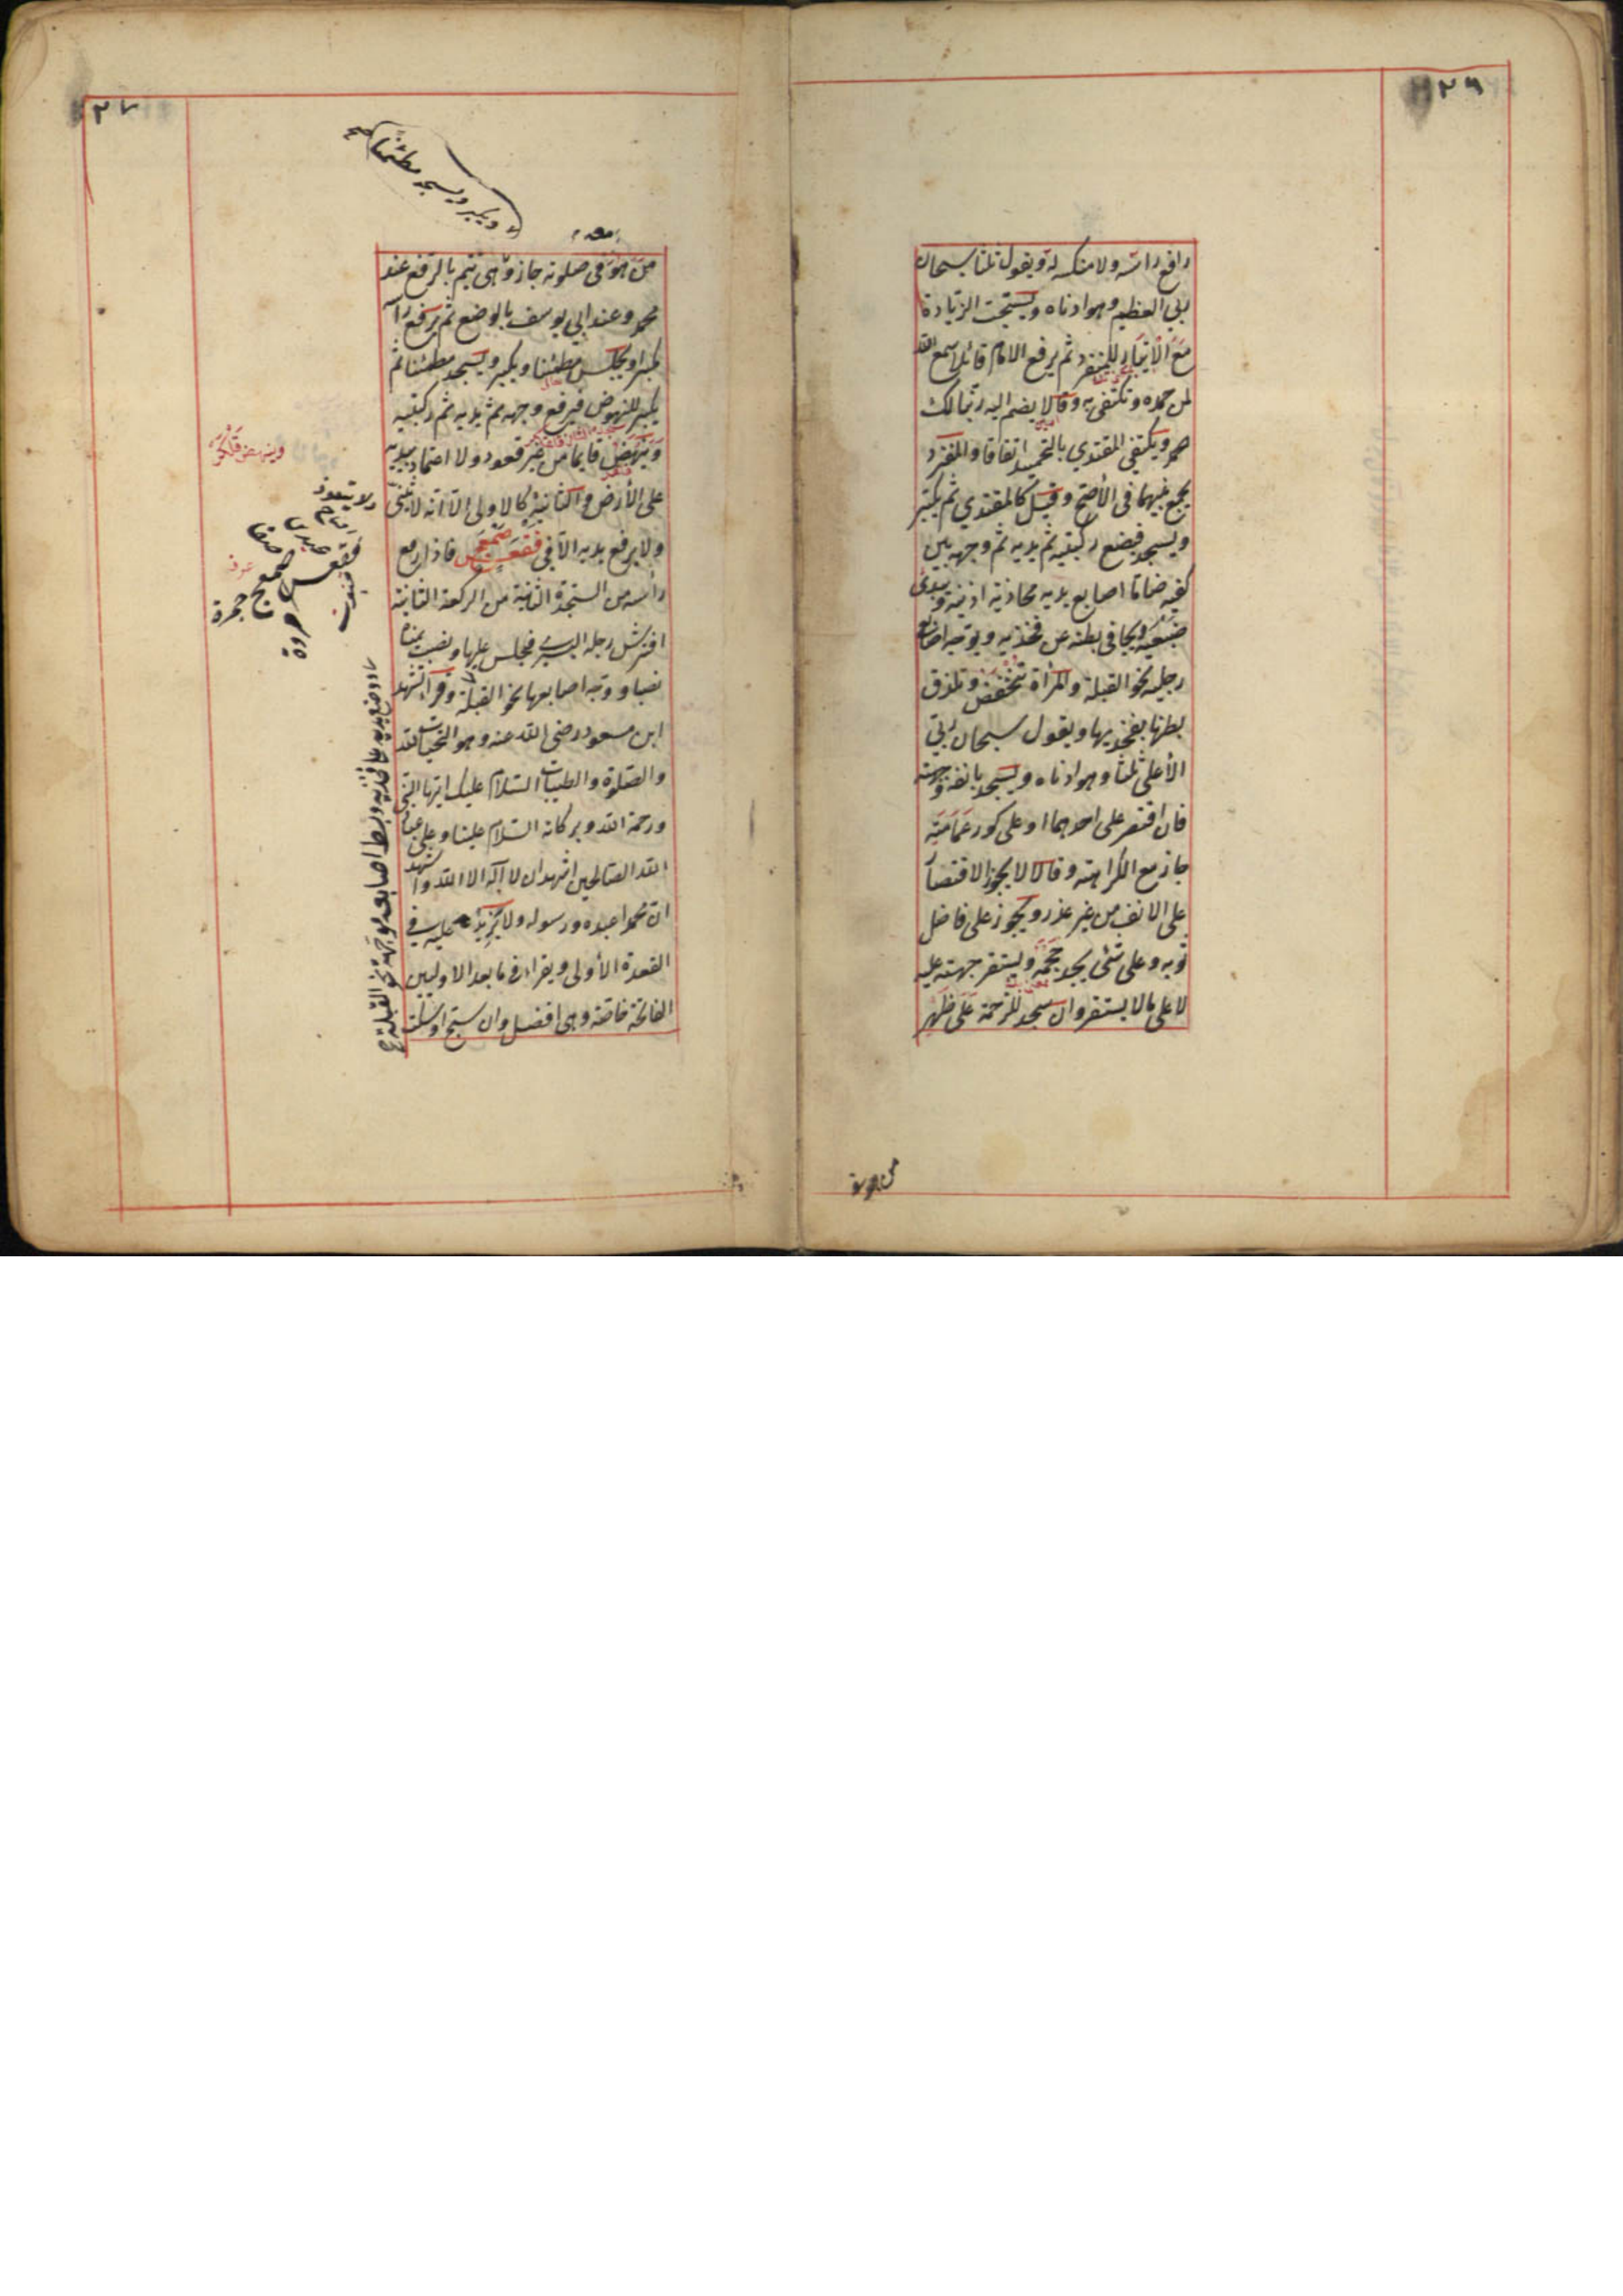 ٢٦
رافع رأسه ولا منكسه له ويقول ثلثا سبحان
ربي العظيم وهو ادناه ويستحب الزيادة
مع الايتار للمنفرد ثم يرفع الامام قائلا سمع الله
لمن حمده ويكتفى به وقالا يضم اليه ربنا لك
حمد ويكتفي المقتدي بالتحميد اتفاقا والمنفرد
يجمع بينهما في الأصح وقيل كالمقتدي ثم يكبر
ويسجد فيضع ركبتيه ثم يديه ثم وجهه بين
كفيه ضاما اصابع يديه محاذية اذنيه ويبدئ
ضبعيه ويجافى بطنه عن فخذيه ويوجه اصابع
رجليه نحو القبلة والمرأة تنخفض وتلزق
بطنها بفخذيها ويقول سبحان ربي
الأعلى ثلثا وهو ادناه ويسجد بانفه وجبهته
فان اقتصر على احدهما او على كور عمامته
جاز مع الكراهته وقالا لا يجوز الاقتصار
على الانف من غير عذر ويجوز على فاضل
ثوبه وعلى شئ يجد حجمه ويستقر جبهته عليه
لا على ما لا يستقر وان سجد للزحمة على ظهر
من هو في
٢٧
ويكبر ويسجد مطمئنا صح
من هو في صلوته جاز وهى تتم بالرفع عند
محمد وعند ابي يوسف بالوضع ثم يرفع رأسه
مكبرا ويجلس مطمئنا ويكبر ويسجد مطمئنا ثم
يكبر للنهوض فيرفع وجهه ثم يديه ثم ركبتيه
وينهض قايما من غير قعود ولا اعتماد بيديه
على الأرض والثانية كالاولى الا انه لا يثنى
ولا يرفع يديه الا في فقعس صمعج فاذا رفع
رأسه من السجدة الثانية من الركعة الثانية
افترش رجله اليسرى فجلس عليها ونصب يمناه
نصبا ووجه اصابعها نحو القبلة وقرأ تشهد
ابن مسعود رضى الله عنه وهو التحيات لله
والصلوة والطيبات السلام عليك ايها النبي
ورحمة الله وبركاته السلام علينا وعلى عباد
الله الصالحين اشهد ان لا اله الا الله واشهد
ان محمدا عبده ورسوله ولا يزيد عليه في
القعدة الأولى ويقرا فى ما بعد الاوليين
الفاتحة خاصة وهى افضل وان سبح او سكت
ولا يتعوذ
فقعس صمعج
صفا
عرفه
جمرة
مروة
قنوت
ووضع يديه على فخذيه وبسط اصابعه موجهة نحو القبلة